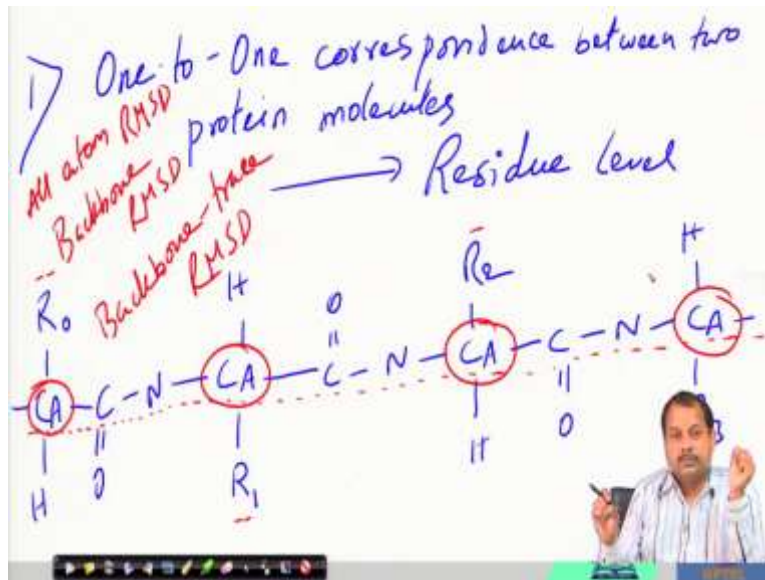 1) One-to-One correspondence between two
protein molecules
→ Residue level
All atom RMSD
Backbone
RMSD
Backbone-trace
RMSD
R₀ H O R₂ H
CA - C - N - CA - C - N - CA - C - N - CA
H O R₁ H O